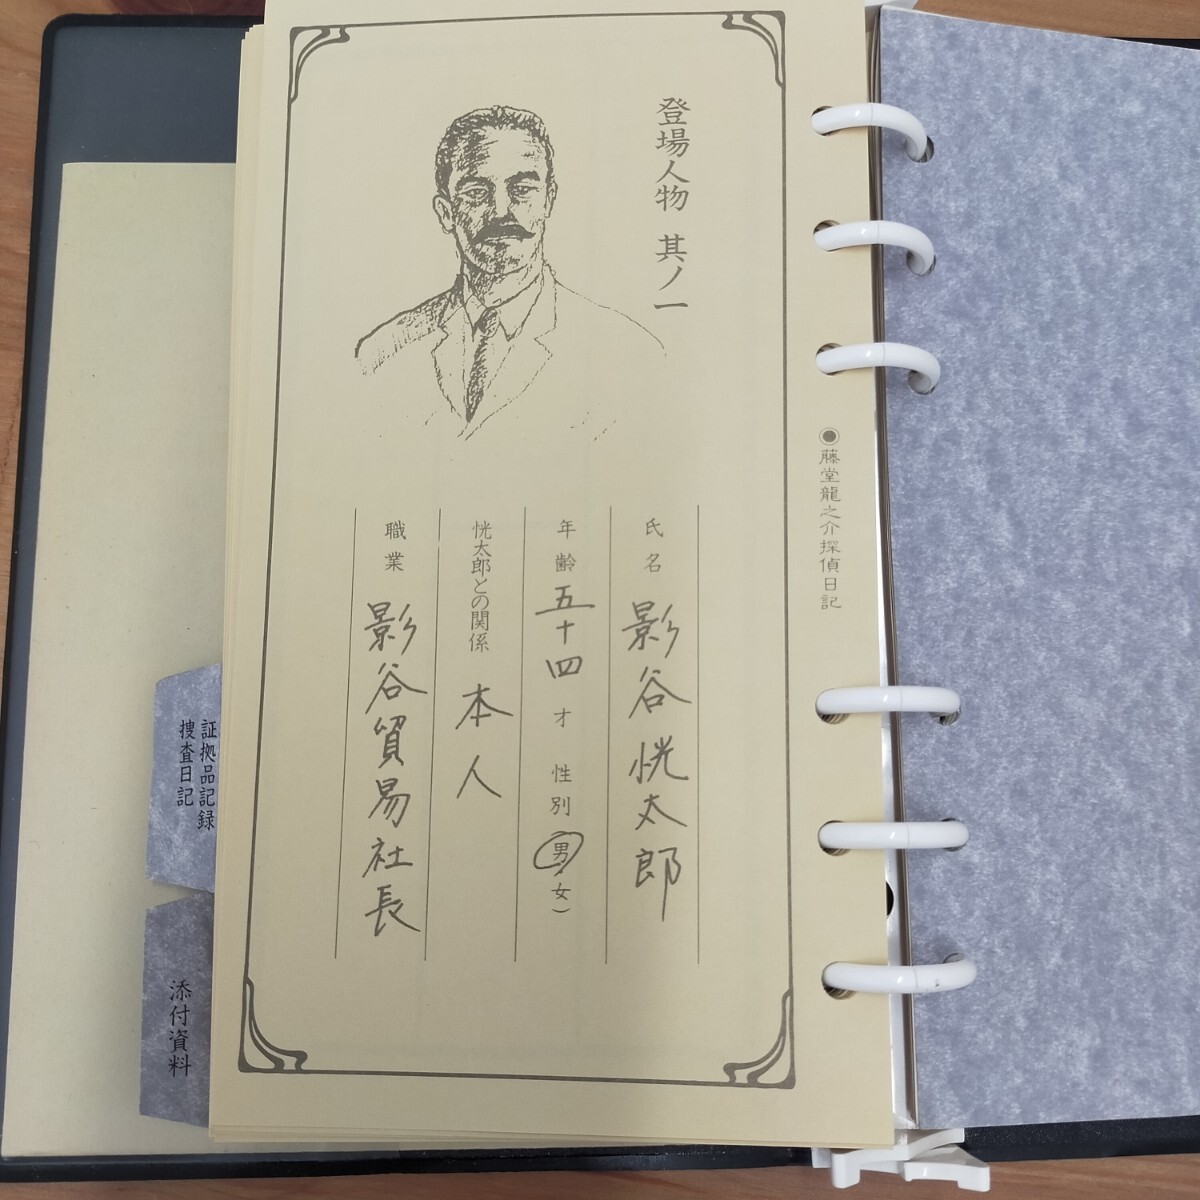 ●藤堂龍之介探偵日記
登場人物 其ノ一
氏名 影谷恍太郎
年齢 五十四 才 性別 男 女)
恍太郎との関係 本人
職業 影谷貿易社長
証拠品記録
捜査日記
添付資料